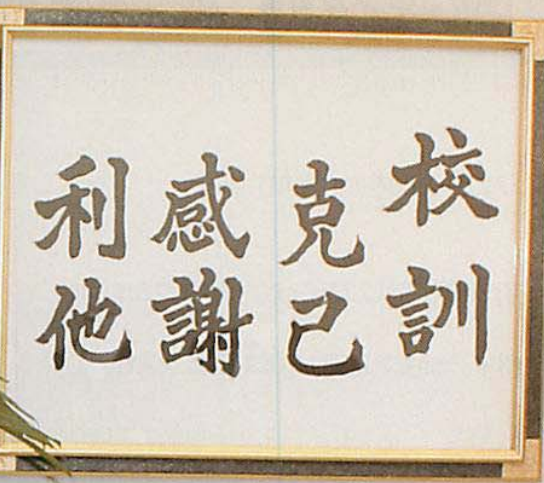 校訓
克己
感謝
利他